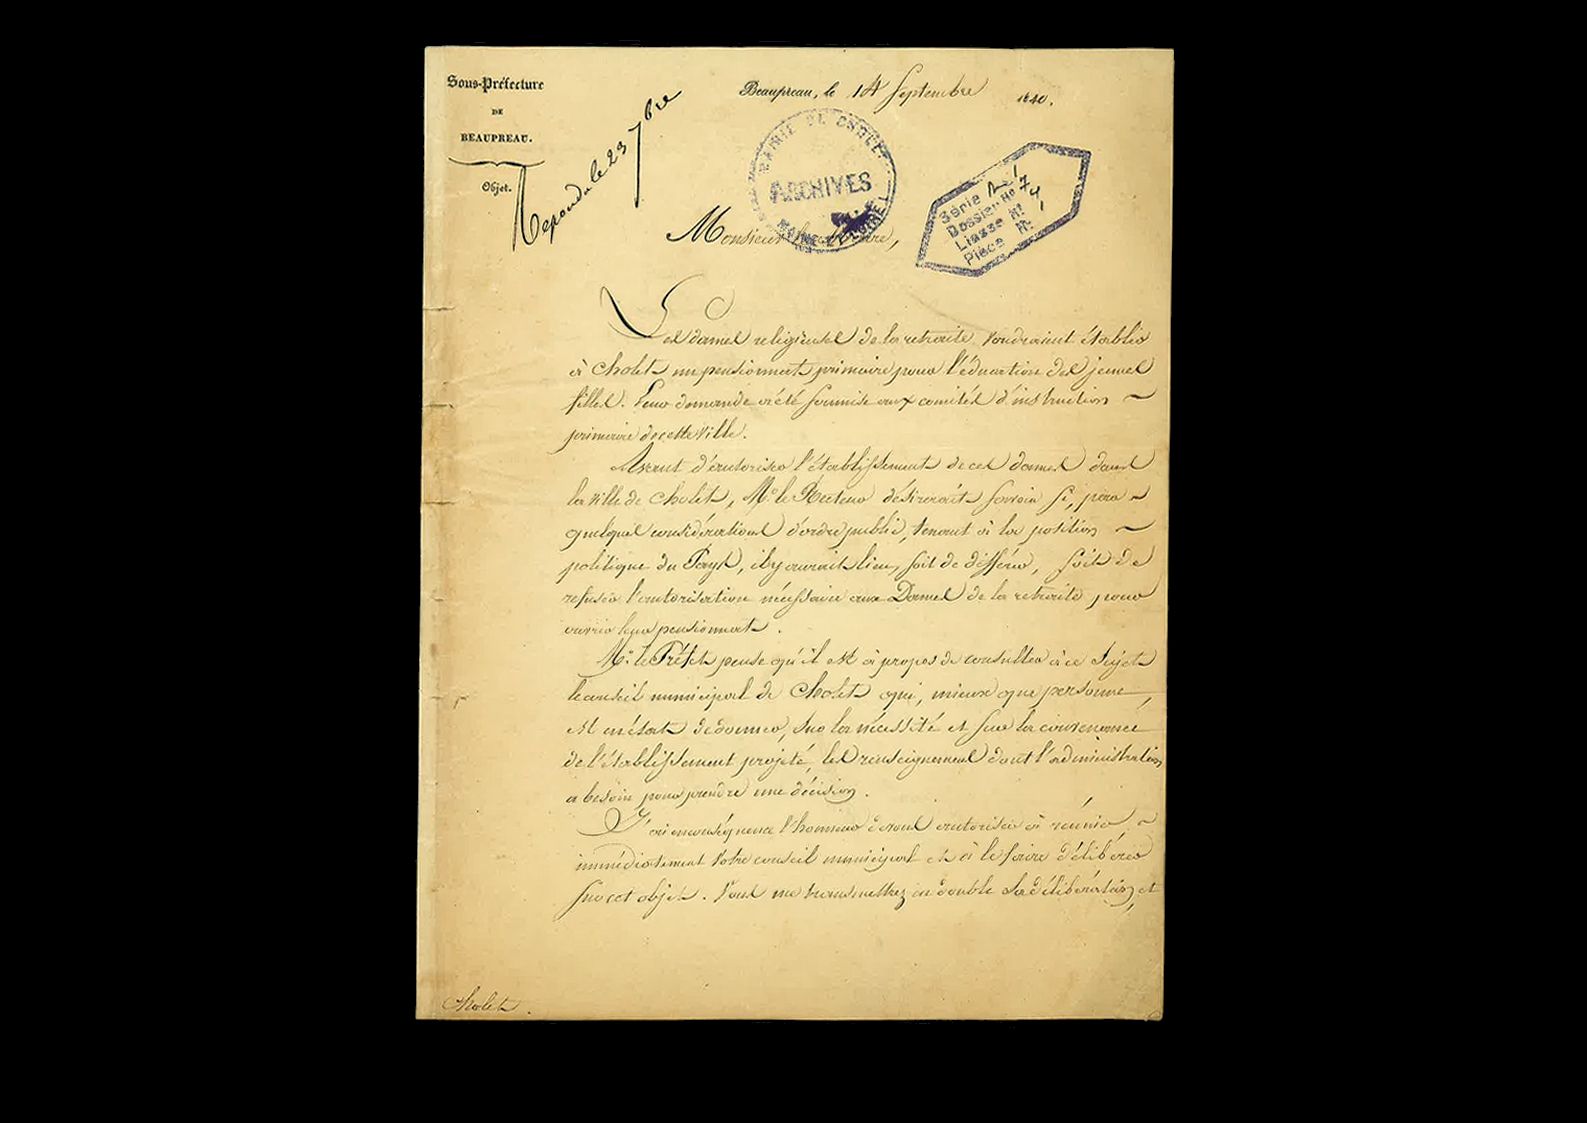 Sous-Préfecture
DE
BEAUPREAU.
Objet.
Repondu le 23 7bre
Beaupreau, le 14 Septembre 1840.
MAIRIE DE CHOLET
ARCHIVES
MAINE ET LOIRE
Série
Dossier N° 74
Liasse N°
Pièce N°
Monsieur le Maire,
Les dames religieuses de la retraite voudraient établir
à Cholet un pensionnat primaire pour l'éducation des jeunes
filles. Leur demande a été soumise aux comités d'instruction
primaire de cette ville.
Avant d'autoriser l'établissement de ces dames dans
la ville de Cholet, Mr. le Recteur désirerait savoir si, par
quelques considérations d'ordre public, tenant à la position
politique du Pays, il y aurait lieu, soit de différer, soit de
refuser l'autorisation nécessaire aux Dames de la retraite pour
ouvrir leur pensionnat.
Mr. le Préfet pense qu'il est à propos de consulter à ce sujet
le conseil municipal de Cholet qui, mieux que personne,
est en état de donner, sur la nécessité et sur la convenance
de l'établissement projeté, les renseignements dont l'administration
a besoin pour prendre une décision.
J'ai en conséquence l'honneur de vous autoriser à réunir
immédiatement votre conseil municipal et à le faire délibérer
sur cet objet. Vous me transmettrez en double sa délibération, et
Cholet.